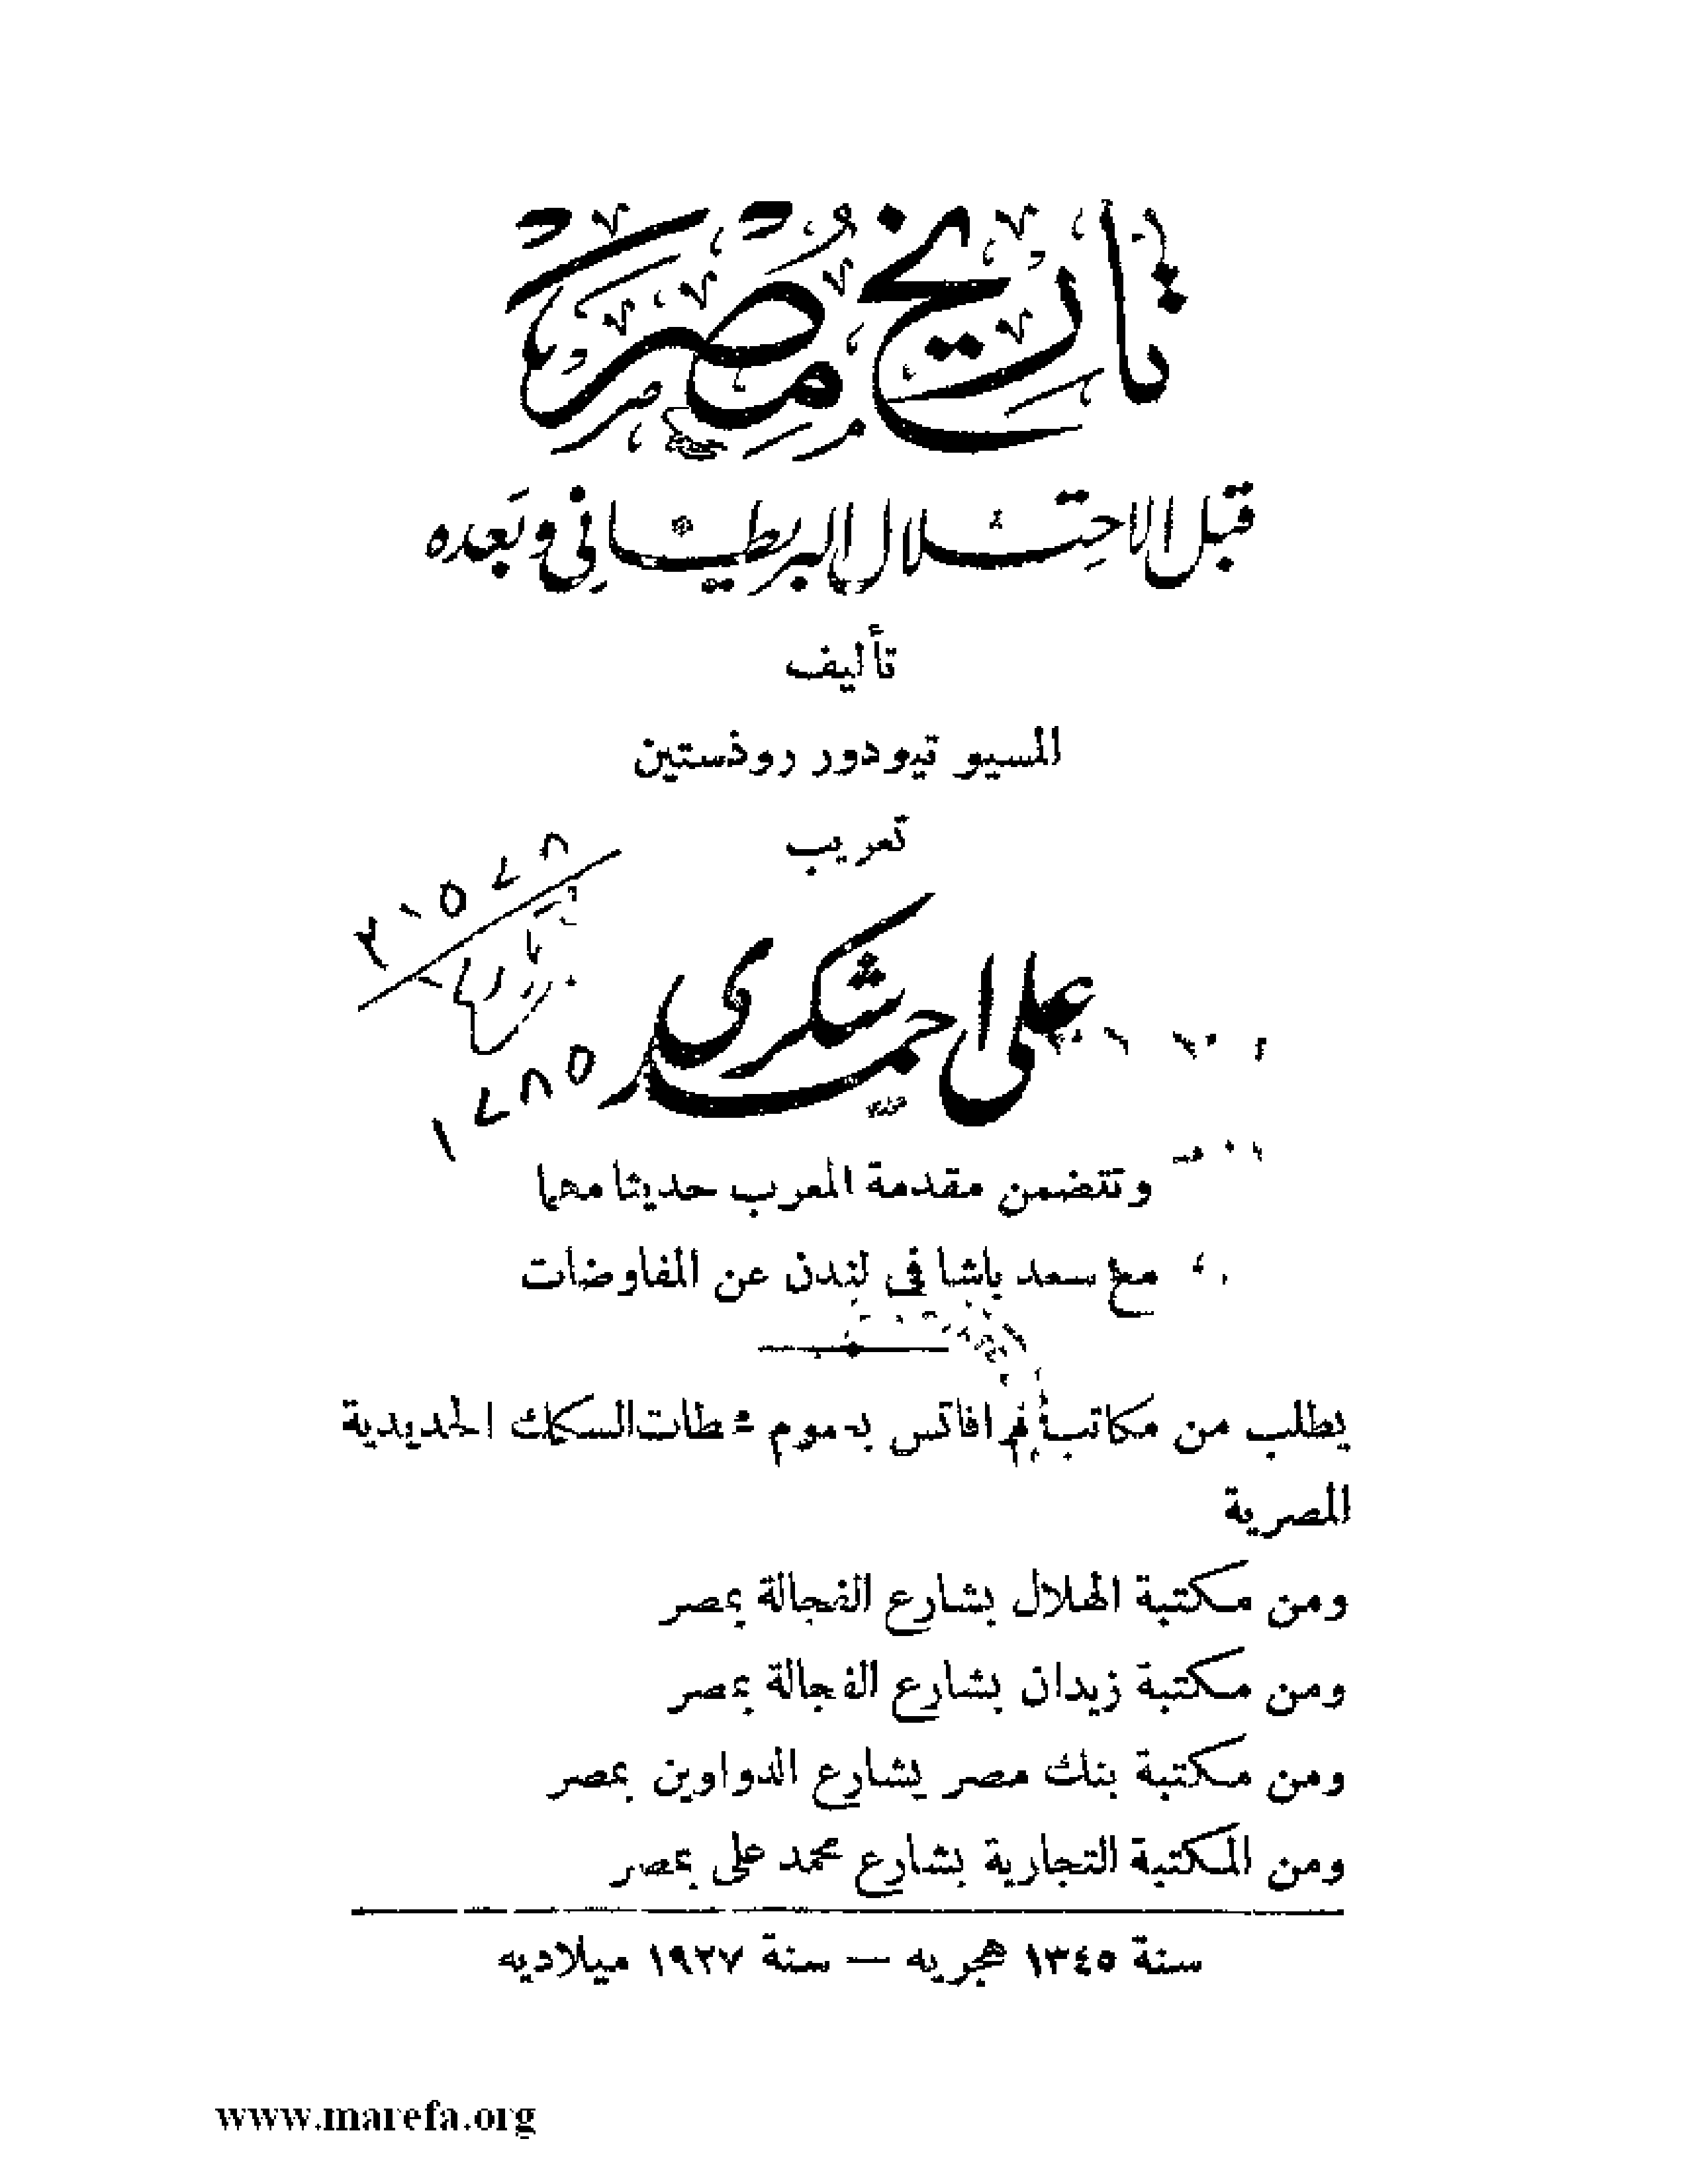 تاريخ مصر
قبل الاحتلال البريطاني وبعده
تأليف
المسيو تيودور روذستين
تعريب
على احمد شكرى
وتتضمن مقدمة المعرب حديثا مهما
مع سعد باشا في لندن عن المفاوضات
يطلب من مكاتب افاتس بعموم محطات السكك الحديدية
المصرية
ومن مكتبة الهلال بشارع الفجالة بمصر
ومن مكتبة زيدان بشارع الفجالة بمصر
ومن مكتبة بنك مصر بشارع الدواوين بمصر
ومن المكتبة التجارية بشارع محمد على بمصر
سنة ١٣٤٥ هجريه — سنة ١٩٢٧ ميلاديه
www.marefa.org